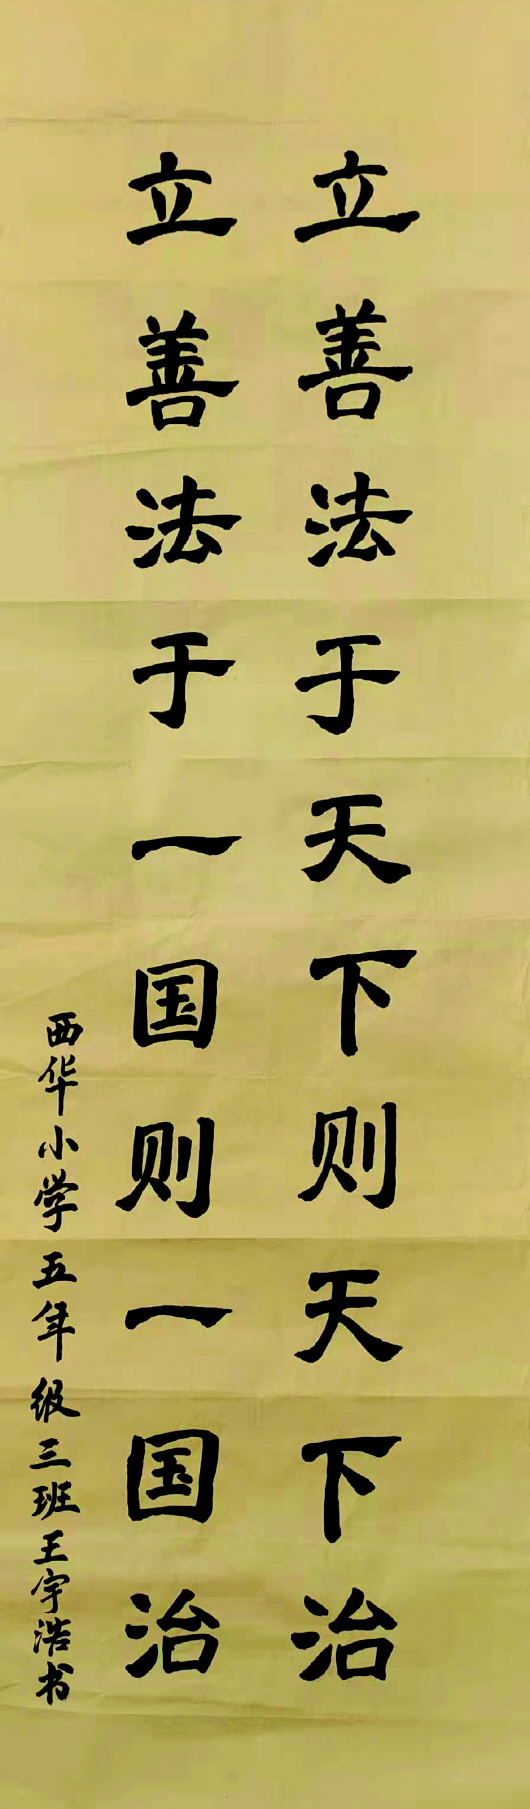 立善法于天下则天下治
立善法于一国则一国治
西华小学五年级三班王宇浩书